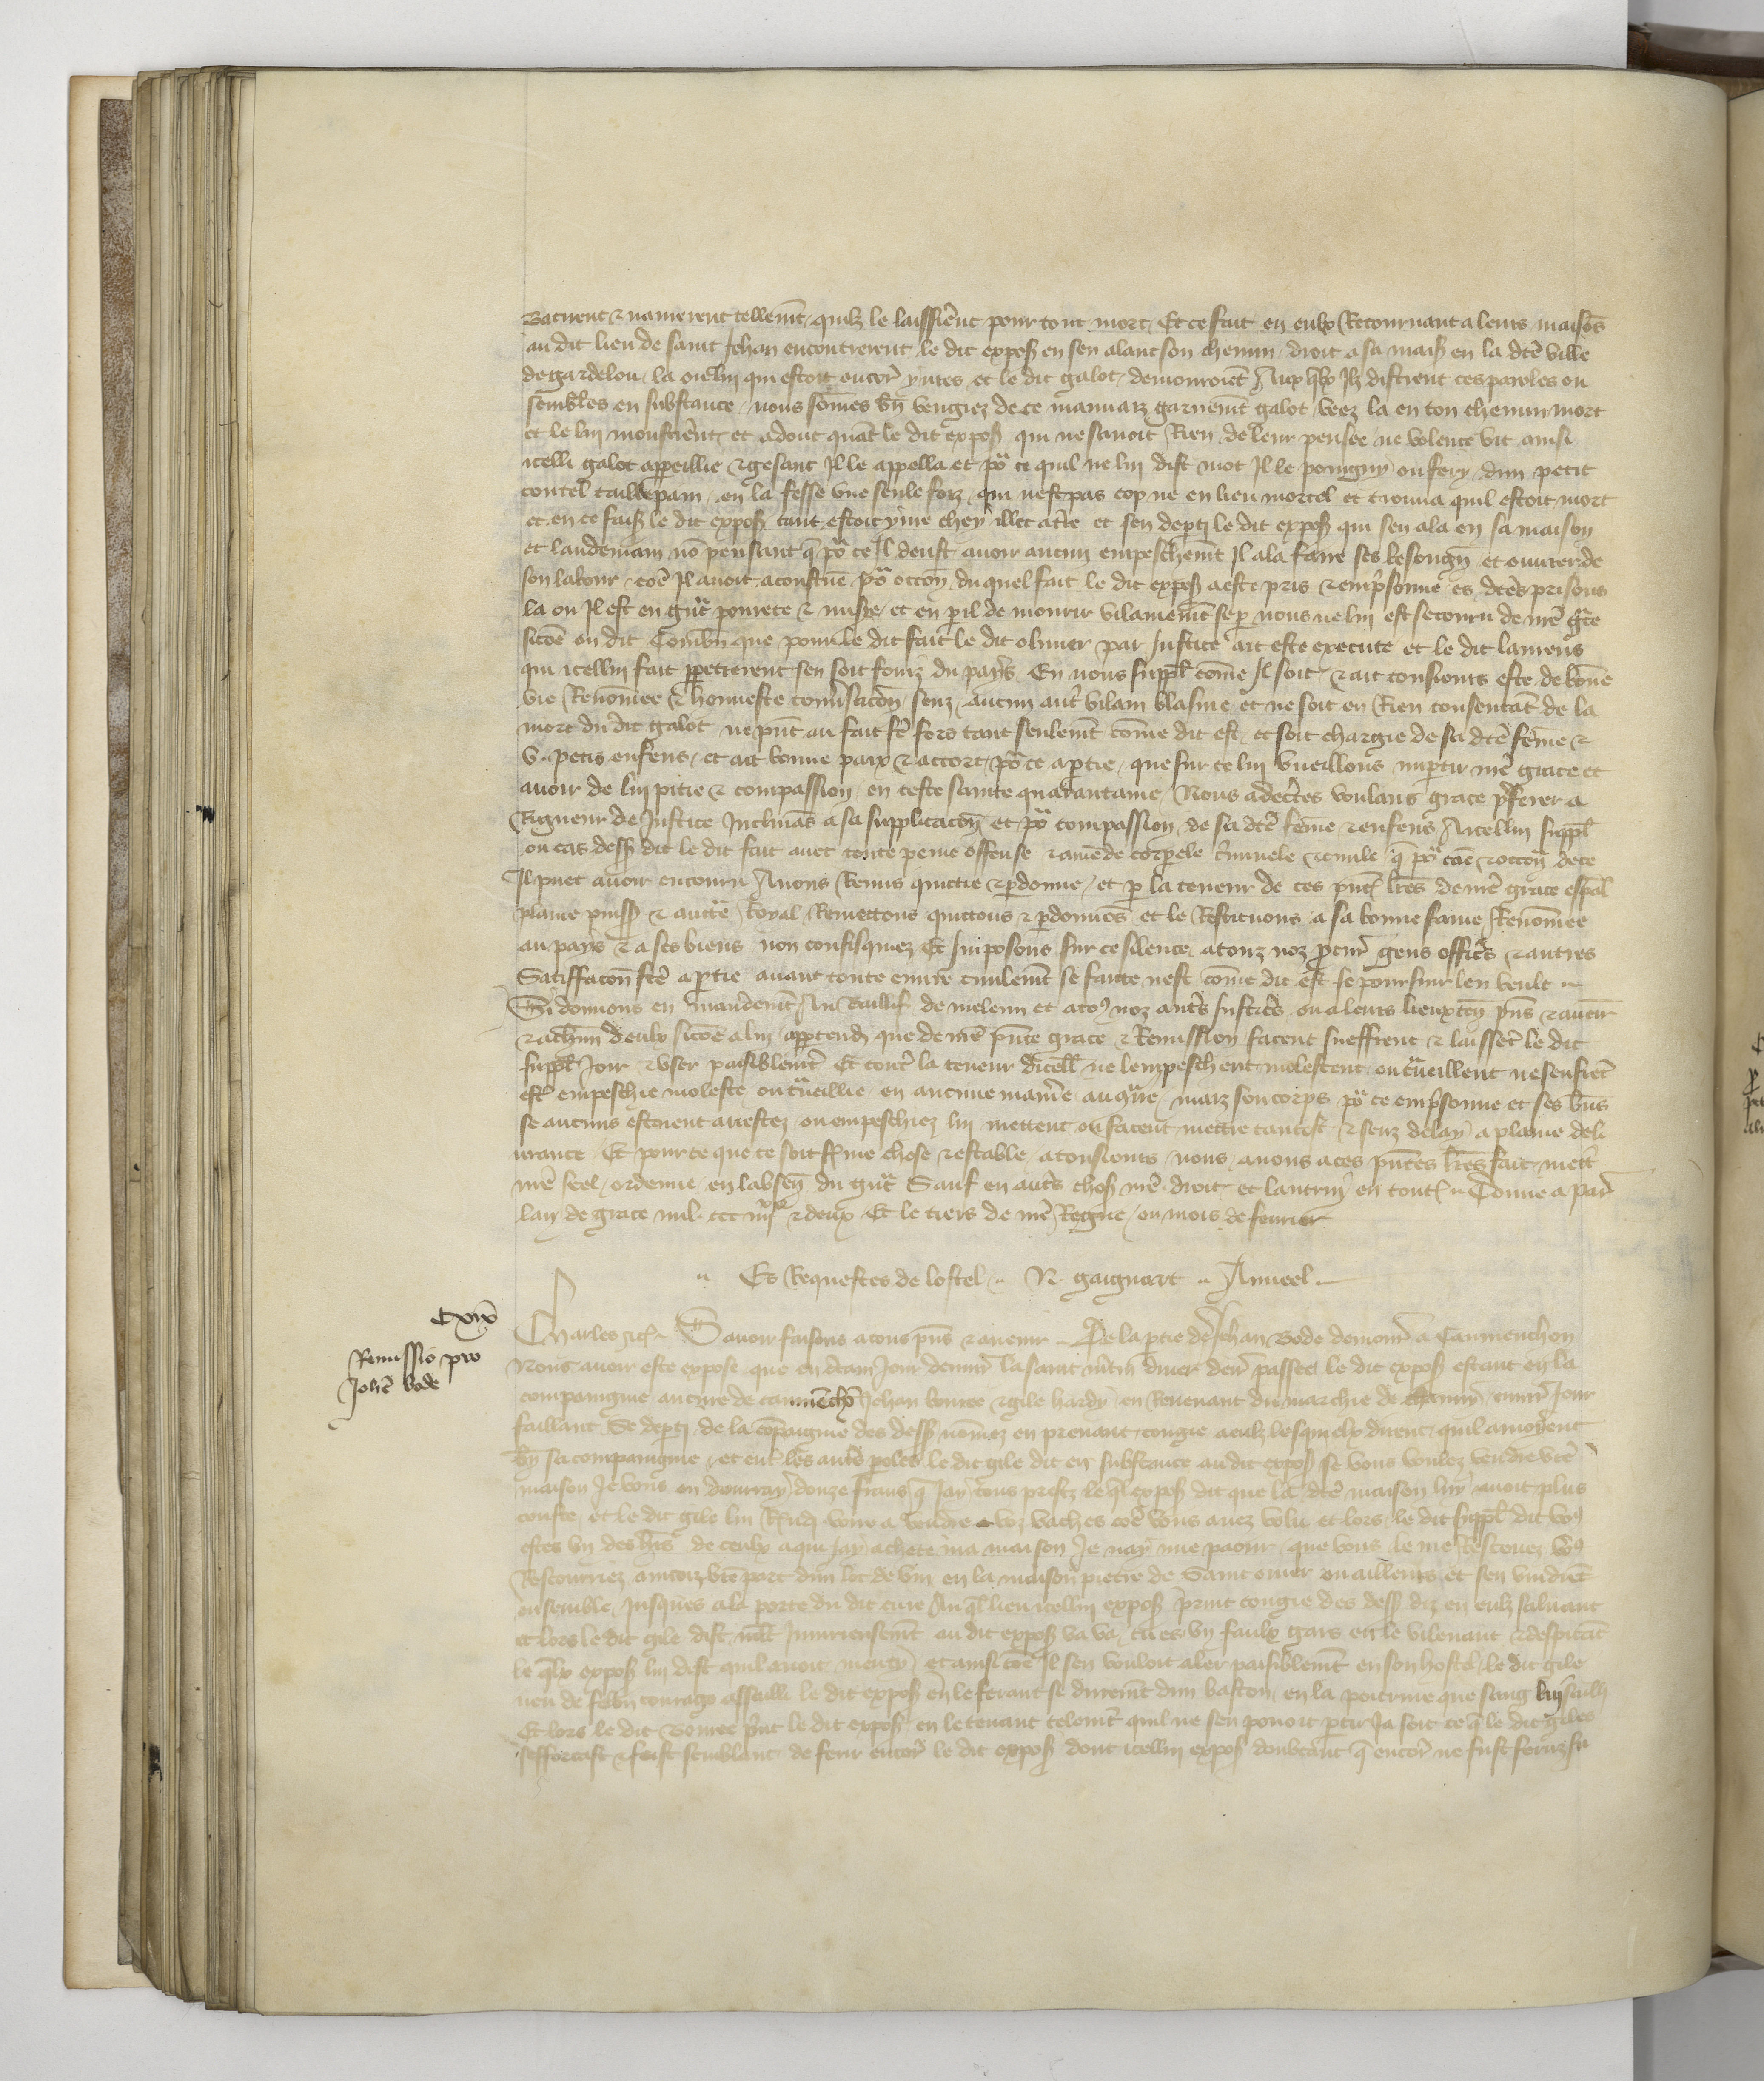 Batirent & navrerent tellemt quilz le laissierent pour tout mort Et ce fait en eulx Retournant a leurs maisos
au dit lieu de saint Jehan encontrerent le dit exposn en sen alant son chemin droit a sa mais en la dte ville
de gardelou la ou lui qui estoit encor yvres et le dit galot demouroiet Aux qlx Ilz distrent ces paroles ou
semblēs en substance nous sōmes bn vengiez de ce mauvaiz garnemt galot veez la en ton chemin mort
et le lui monstrēnt et adont quāt le dit expos qui ne savoit Rien de leur pensee ne volente vit ainsi
icelli galot appeillie & gesant Il le appella et po' ce quil ne lui dist mot Il le poingny ou fery dun petit
coutel taillepain en la fesse une seule foiz qui nest pas cop ne en lieu mortel et trouva quil estoit mort
et en ce faisn le dit expos tant estoit yvre chey illec a tre et sen depti le dit expos qui sen ala en sa maison
et landemain nō pensant q po' ce Il deust avoir aucun empeschemt Il ala faire ses besongn et ouvrer de
son labour cōe Il avoit acoustūe po' occōn du quel fait le dit expos a este pris & emprisonne es dtes prisons
la ou Il est en gnt povrete & misē et en pil de mourir vilainemt se p nous ne lui est secouru de nre grce
sicōe ou dit Combn que pour le dit fait le dit olivier par Justice ait este execute et le dit laurens
qui icellui fait ppetrerent sen soit fouiz du pays En nous suppl cōme Il soit & ait tousiours este de bone
vie Renōmee & honneste convsacōn senz aucun autr vilain blasme et ne soit en Rien consentāt de la
mort du dit galot ne pnt au fait fcē fors tant seulemt cōme dit est et soit chargie de sa dte feme &
v. petis enfens et ait bonne paix & accort po' ce a ptie que sur ce lui vueillons impartir nre grace et
avoir de lui pitie & compassion en ceste sainte quarantaine Nous adecertes voulans grace pferer a
Rigueur de Justice Inclinās a sa supplicacōn et po' compassion de sa dte feme & enfens A icellui suppl
ou cas dess dit le dit fait avec toute peine offense & amēde corpele cimuele & civile q po' cāe & occōn de ce
Il puet avoir encouru Avons Remis quictie & pdonne et p la teneur de ces pnt lres de nre grace espal
plaine puiss & aucte Royal Remettons quittons & pdonnōs et le Restituons a sa bonne fame Renōmee
au pays & a ses biens non confisquez Et Imposons sur ce silence a touz noz pcur gens officrs & autres
Satiffacōn fte a ptie avant toute euvre civilemt se faitte nest cōme dit est se poursuir len veult
Si donnons en mandemt Au Baillif de meleun et a to9 noz autrs Justices ou a leurs lieuxten pns & avenir
& a chun deulx sicōe a lui apptendr que de nre pnte grace & Remission facent sueffrent & laissēt le dit
suppl Joir & user paisiblemt Et contr la teneur dicell ne lempeschent molestent ou tueillent ne seuffrēt
estr empeschie moleste ou tueillie en aucune manre au ctre maiz son corps po' ce emprisonne et ses bns
se aucuns estoient arrestez ou empeschiez lui mettent ou facent mettre tantost & senz delay a plaine deli
vrance Et pour ce que ce soit ferme chose & estable a tousiours nous avons a ces pntes lres fait mettr
nre seel ordenne en labsen du gnt Sauf en autrs chos nre droit et lautruy en tout Donne a paris
lan de grace mil ccc iiijxx & deux Et le tiers de nre Regne ou mois de fevrier
Es Requestes de lostel N. gaignart Anneel
Cxix
Remissio pro
Johe bode
Charles &c Savoir faisons a tous pns & avenir De la ptie de Jehan Bode demour a Caumenchon
Nous avoir este expose que en deain Jour devant la saint mtin diver derr passee le dit expos estant en la
compaingnie aucune de caumēchō Jehan vonree & gile hardy en Revenant du marchie de chauny env Jour
faillant Se depti de la cōpaignie des dess nomez en prenant congie a eulz lesquelx dirent quil amoient
bn sa compaingnie et ent les autrs poles le dit gile dit en substance au dit expos se vous voulez vendre vre
maison Je vous en donray donze frans q Jay tous prestz le ql expos dit que la dte maison luy avoit plus
couste et le dit gile lui Rndi voire a vendre voz vaches cōe vous avez volu et lors le dit suppl dit vo9
estes un des hrs de ceulx a qui Jay achete ma maison Je nay mie paour que vous le me Rescouez vo9
Rescourriez aincoiz vre part dun lot de vin en la maison pierre de Saint omer ou ailleurs et sen vindrēt
ensemble Jusques a la porte du dit cure Au ql lieu icellui expos print congie des dess diz en eulz saluant
et lors le dit gile dist mlt Injurieusemt au dit expos va va tu es un faulx gars en le vilenant & despitāt
le qlx expos lui dist quil avoit menty et ainsi cōe Il sen vouloit aler paisiblemt en son hostel le dit gile
meu de felon courage assailli le dit expos en le ferant se duremt dun baston en la poitrine que sang lui sailli
Et lors le dit vonree print le dit expos en le tenant telemt quil ne sen povoit ptir Ja soit ce q le dit giles
sefforcast & feist semblant de ferir encor le dit expos dont icellui expos doubtant q encor ne fust feruz se